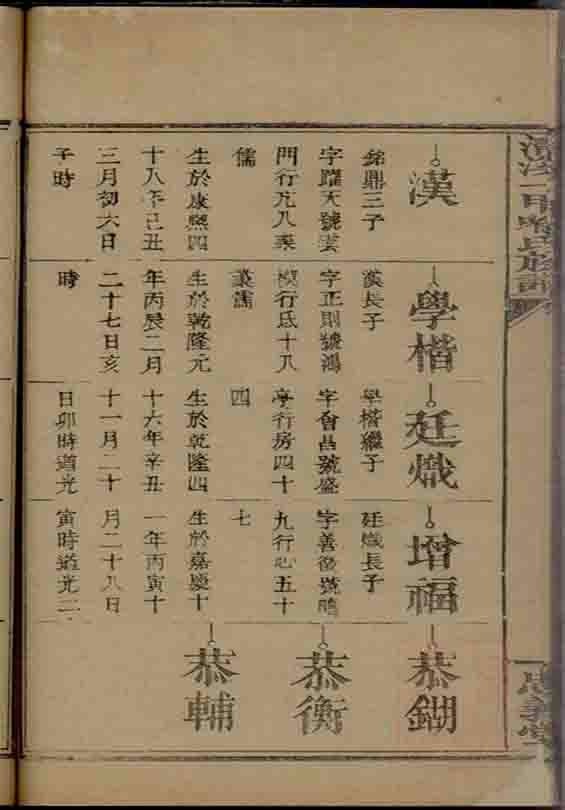 氏族譜
堂
漢
銘鼎三子
字躍天號雲
門行亢八業
儒
生於康熙四
十八年己丑
三月初六日
子時
學楷
漢長子
字正則號鴻
模行氐十八
業儒
生於乾隆元
年丙辰二月
二十七日亥
時
廷熾
學楷繼子
字會昌號盛
亭行房四十
四
生於乾隆四
十六年辛丑
十一月二十
日卯時道光
增福
廷熾長子
字善號鵬
九行心五十
七
生於嘉慶十
一年丙寅十
月二十八日
寅時道光二
恭鍸
恭衡
恭輔